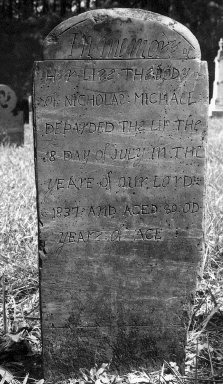 In memory of
HER LIES THE BODY
OF NICHOLAS MICHAEL
DEPARDED THE LIF THE
8 DAY of JULY IN THE
YEARE of our LORD
1837 AND AGED 80 OD
YEARS of AGE